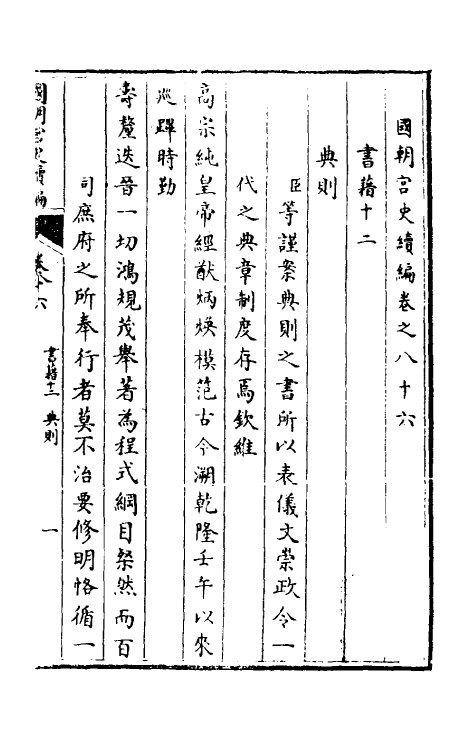 國朝宮史續編卷之八十六
書籍十二
典則
臣等謹案典則之書所以表儀文崇政令一
代之典章制度存焉欽維
高宗純皇帝經猷炳煥模范古今溯乾隆壬午以來
巡蹕時勤
壽釐迭晉一切鴻規茂舉著為程式綱目粲然而百
司庶府之所奉行者莫不治要修明恪循一
國朝宮史續編
卷八十六
書籍十二 典則
一